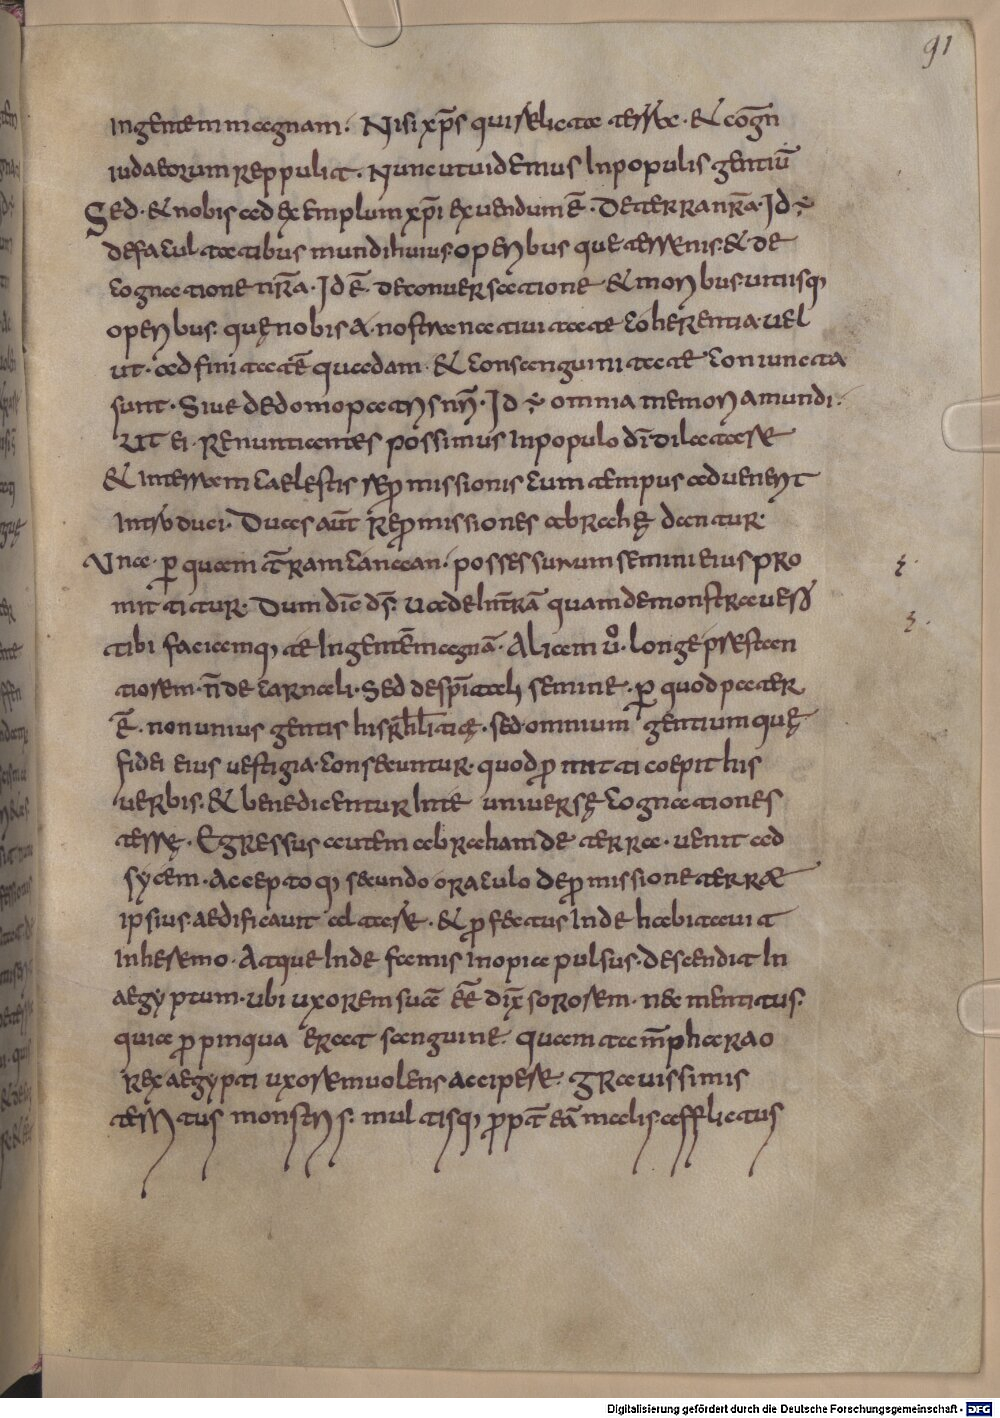 91
ingentem magnam. Nisi xp̄s qui relicta terra. & cogn̄
iudaeorum reppulit. Nunc ut uidemus In populis gentiū
Sed. & nobis ad exemplum xp̄i exeundum ē. De terra nr̄a. Id ÷
de facultatibus mundi huius. operibus que terrenis. & de
cognatione nr̄a. Id ē. de conuersatione & moribus. uitiisq;
operibus. quę nobis a nostra natiuitate coherentia. uel
ut. ad finitatē quadam. & consanguinitate coniuncta
sunt. Siue de domo patris nr̄i. Id ÷ omnia memoria mundi.
Ut ei. renuntiantes possimus In populo dī dilatare
& in terram caelestis repromissionis cum tempus aduenerit
introduci. Duces aūt repromissiones abrahę dantur.
Una. per quam t̄ram canaan. possessurum semini eius pro
mittitur. Dum dic̄ dn̄s. uade In t̄rā quam demonstrauero
tibi faciamq; te In gentē magnā. Aliam ůͦ. longe praestan
tiorem. n̄ de carnali. Sed de sp̄itali semine. per quod pater
ē. non unius gentis hisrł̄iticę. sed omnium gentium quę
fidei eius uestigia. consecuntur. quod promitti coepit his
uerbis. & benedicentur In te uniuersę cognationes
terrę. Egressus autem abraham de terra. uenit ad
sycem. Acceptoq; secundo oraculo de promissione terrae
ipsius. aedificauit altare. & profectus Inde habitauit
in heremo. Atque Inde famis inopia pulsus. descendit In
aegyptum. ubi uxorem suā eē dix̄ sororem. nec mentitus.
quia propinqua erat sanguine. quam tam̄ pharao
rex aegypti uxorem uolens accipere. grauissimis
territus monstris. multisq; propt̄ eā malis. afflictus
Digitalisierung gefördert durch die Deutsche Forschungsgemeinschaft - DFG